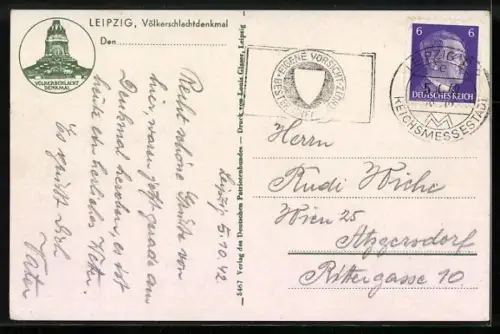 LEIPZIG, Völkerschlachtdenkmal
Den
VÖLKERSCHLACHT
DENKMAL
Leipzig 5.10.42
Recht schöne Grüße von
hier, waren jetzt gerade am
Denkmal heroben, es ist
heute ein herrliches Wetter.
Es grüßt Dich
Vater
5467 Verlag des Deutschen Patriotenbundes — Druck von Louis Glaser, Leipzig
EIGENE VORSICHT
BESTER
6 6
DEUTSCHES REICH
LEIPZIG
REICHSMESSESTADT
Herrn
Rudi Wiche
Wien 25
Atzgersdorf
Rittergasse 10